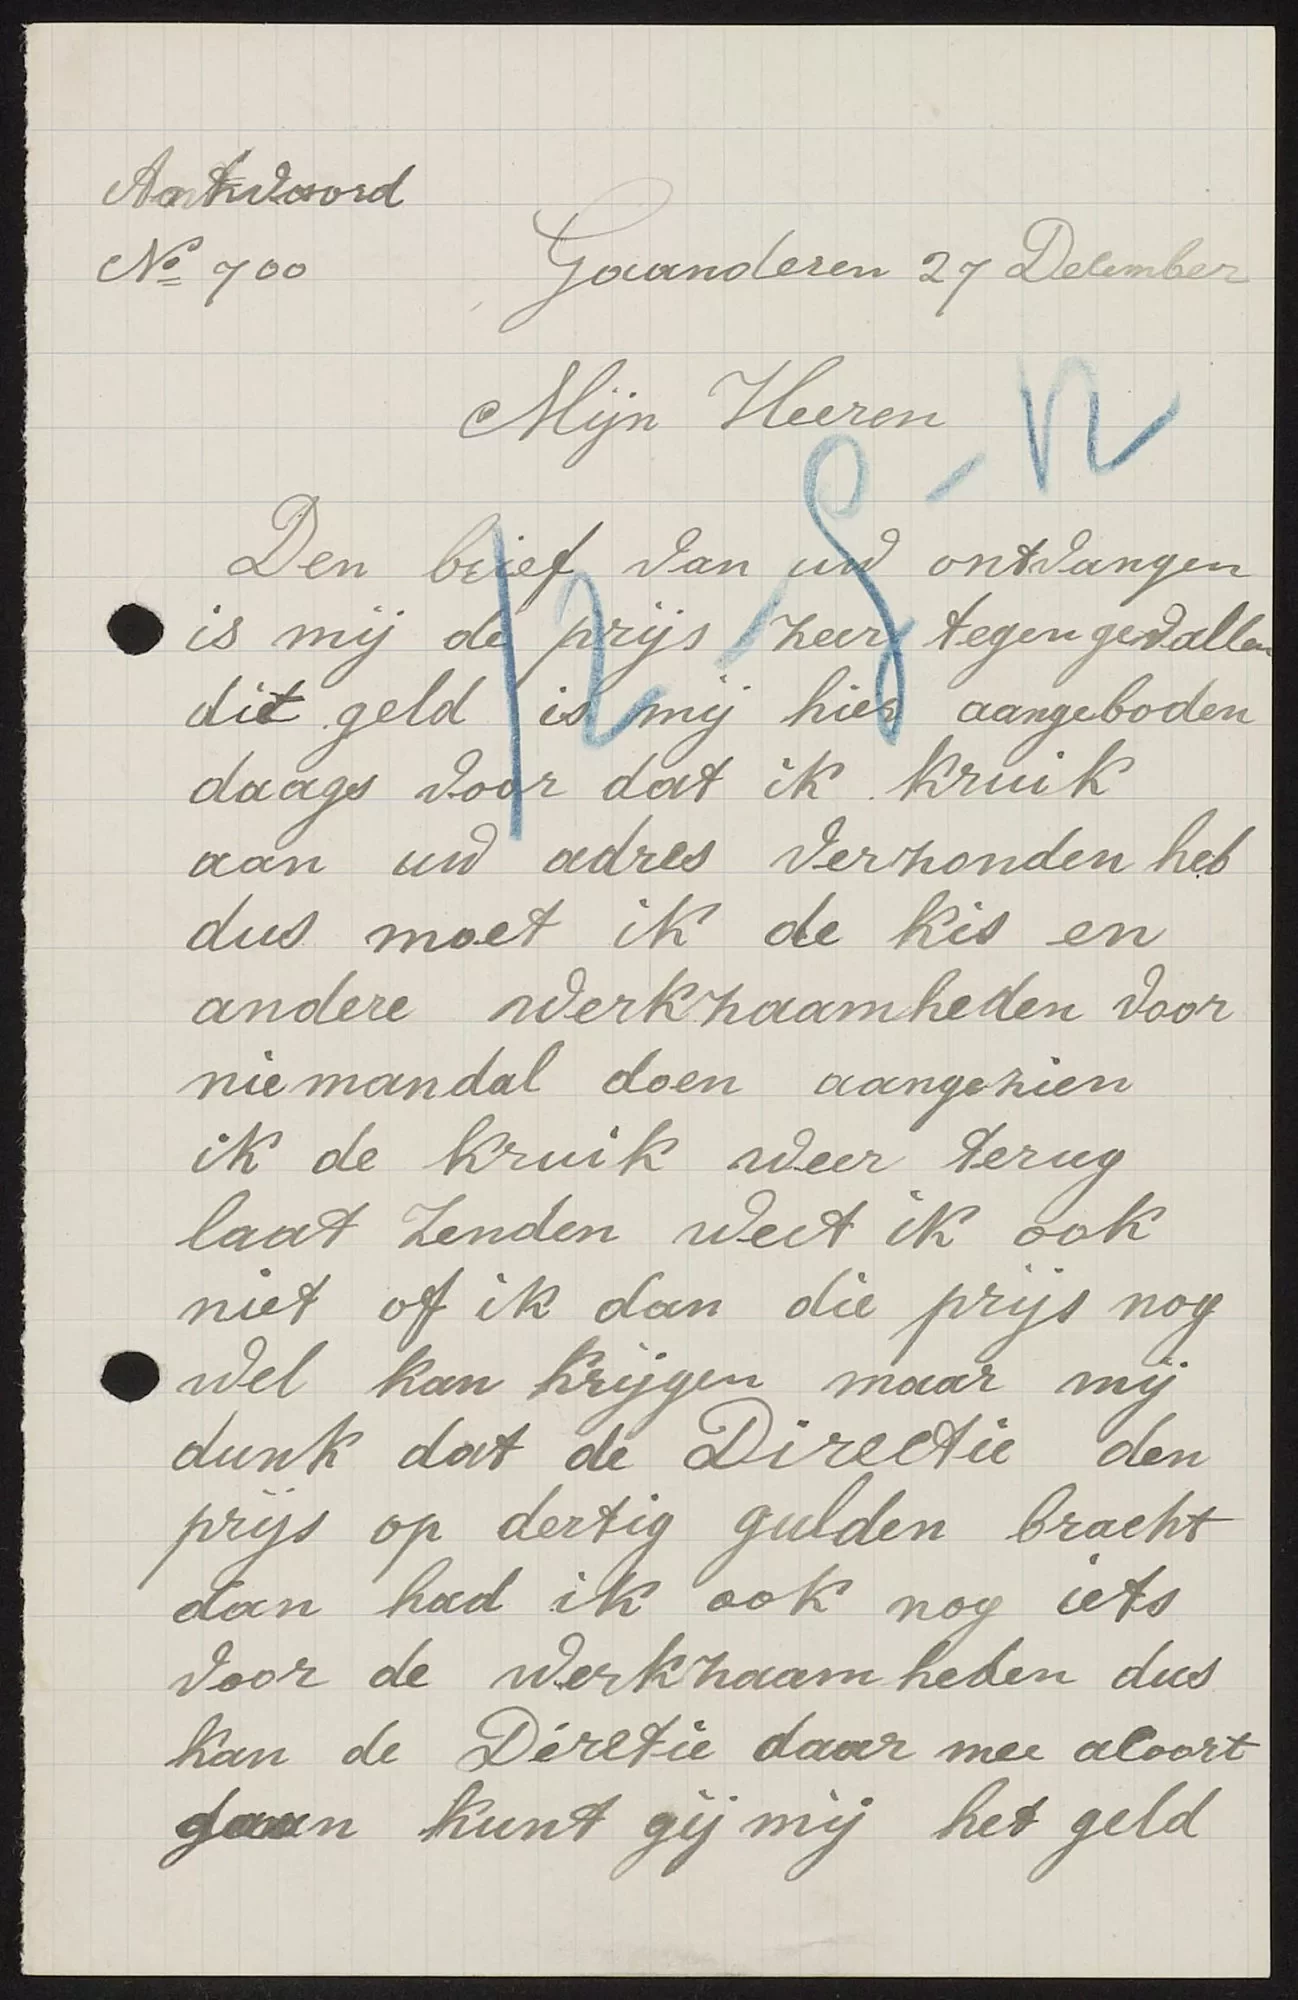 Antwoord
No 700
Gaanderen 27 December
Mijn Heeren
Den brief van uw ontvangen
is mij de prijs zeer tegengevallen
dit geld is mij hier aangeboden
daags voor dat ik kruik
aan uw adres verzonden heb
dus moet ik de kis en
andere werkzaamheden voor
niemandal doen aangezien
ik de kruik weer terug
laat zenden weet ik ook
niet of ik dan die prijs nog
wel kan krijgen maar mij
dunk dat de Directie den
prijs op dertig gulden bracht
dan had ik ook nog iets
voor de werkzaamheden dus
kan de Diretie daar mee acoort
gaan kunt gij mij het geld